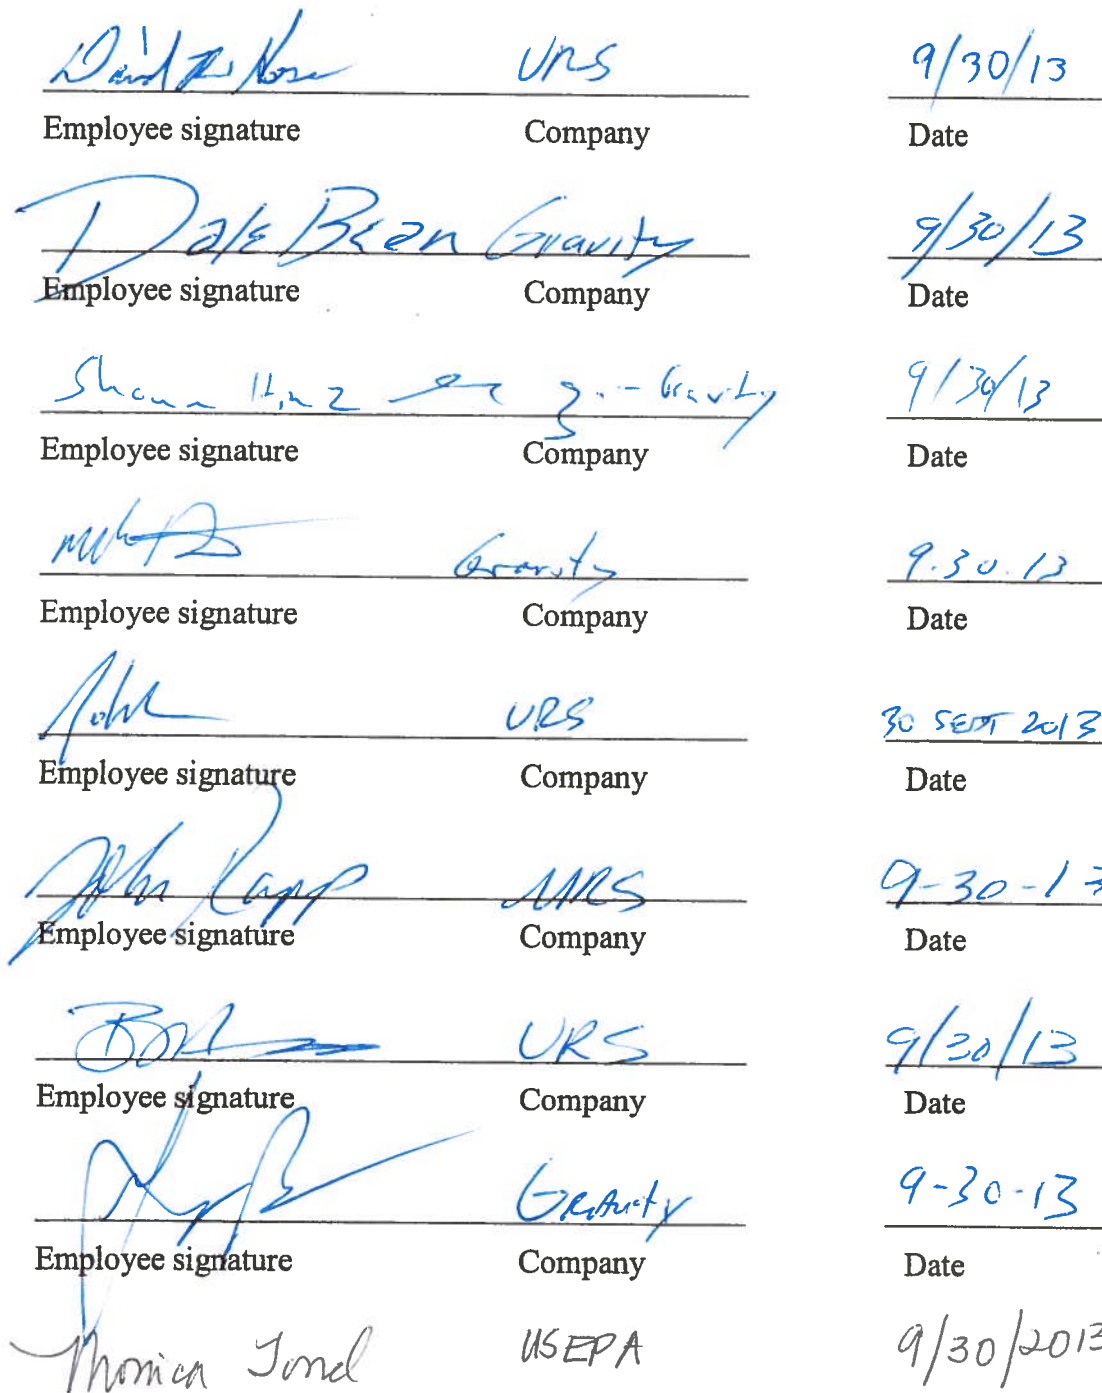 David R. URS 9/30/13
Employee signature Company Date
Dale Bean Gravity 9/30/13
Employee signature Company Date
Shawn Hinz Gravity 9/30/13
Employee signature Company Date
Gravity 9.30.13
Employee signature Company Date
URS 30 SEPT 2013
Employee signature Company Date
John Rapp URS 9-30-13
Employee signature Company Date
URS 9/30/13
Employee signature Company Date
Gravity 9-30-13
Employee signature Company Date
Monica Tonel USEPA 9/30/2013